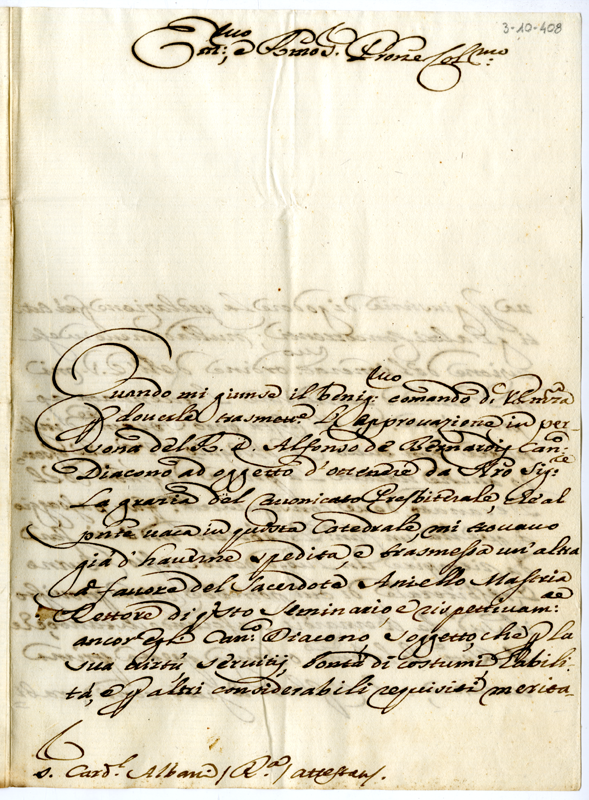 3-10-408
Em:mo, e Rmo S. Prone Col:mo
Quando mi giunse il benig:mo comando di V. Emza
di doverle trasmett:e l'approvazione in per-
sona del R. D. Alfonso de Bernardis Can:co
Diacono ad oggetto d'ottenere da Nro Sig:re
La grazia del Canonicato Presbiterale, che al
pnte vaca in questa Catedrale, mi trovavo
già d'haverne spedita, e trasmessa un'altra
a favore del Sacerdote Aniello Mastria
Rettore di qsto Seminario, e rispettivam:te
ancor egli Can:co Diacono, soggetto, che p la
sua virtù, servitij, bontà di costumi,
tà, e p altri considerabili requisiti merita-
S. Card:l Albani